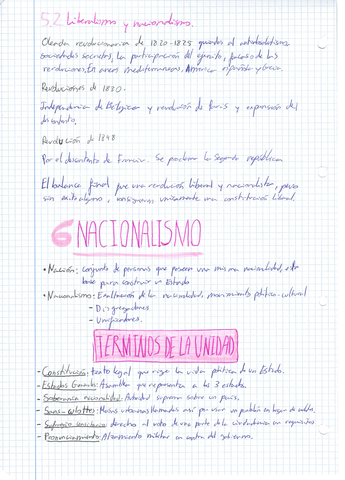 5.2 Liberalismo y nacionalismo.
Oleada revolucionaria de 1820-1825 guiados el antiabsolutismo
sociedades secretas, la participación del ejército, fracaso de las
revoluciones. En areas mediterraneas. America española y Grecia.
Revoluciones de 1830-
Independencia de Bélgica y revolución de Paris y expansión del
descontento.
Revolución de 1848
Por el descontento de Francia. Se proclama la Segunda república
El balance final fue una revolución liberal y nacionalista, pero
sin éxito alguno, consiguieron unicamente una constitución liberal.
6 NACIONALISMO
• Nación: conjunto de personas que poseen una misma nacionalidad, esta
base para construir un Estado
• Nacionalismo: Exaltación de la nacionalidad, movimiento político-cultural
- Disgregadores
- Unificadores.
TERMINOS DE LA UNIDAD
- Constitución: texto legal que rige la vida política de un Estado.
- Estados Generales: Asamblea que representa a los 3 estados.
- Soberanía nacional: Autoridad suprema sobre un país.
- Sans-culottes: Masas urbanas llamadas así por vivir un pantalón en lugar de calzón.
- Sufragio censitario: derecho al voto de una parte de la ciudadanía con requisitos
- Pronunciamiento: Alzamiento militar en contra del gobierno.